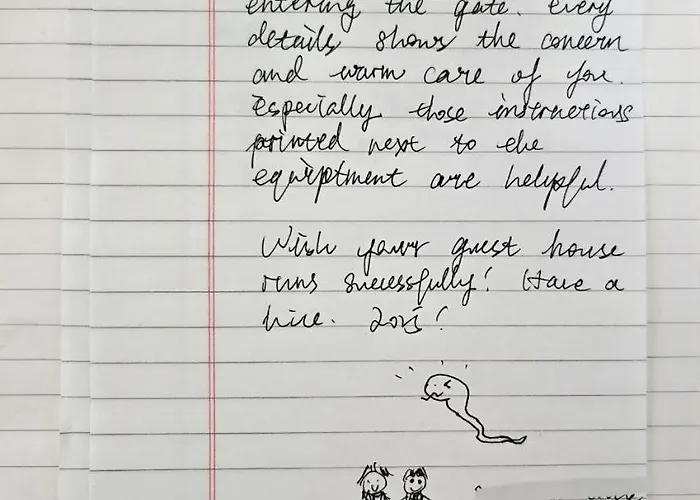 entering the gate. Every
details shows the concern
and warm care of you.
Especially those instructions
printed next to the
equiptment are helpful.
Wish your guest house
runs sucessfully! Have a
nice. 2025!